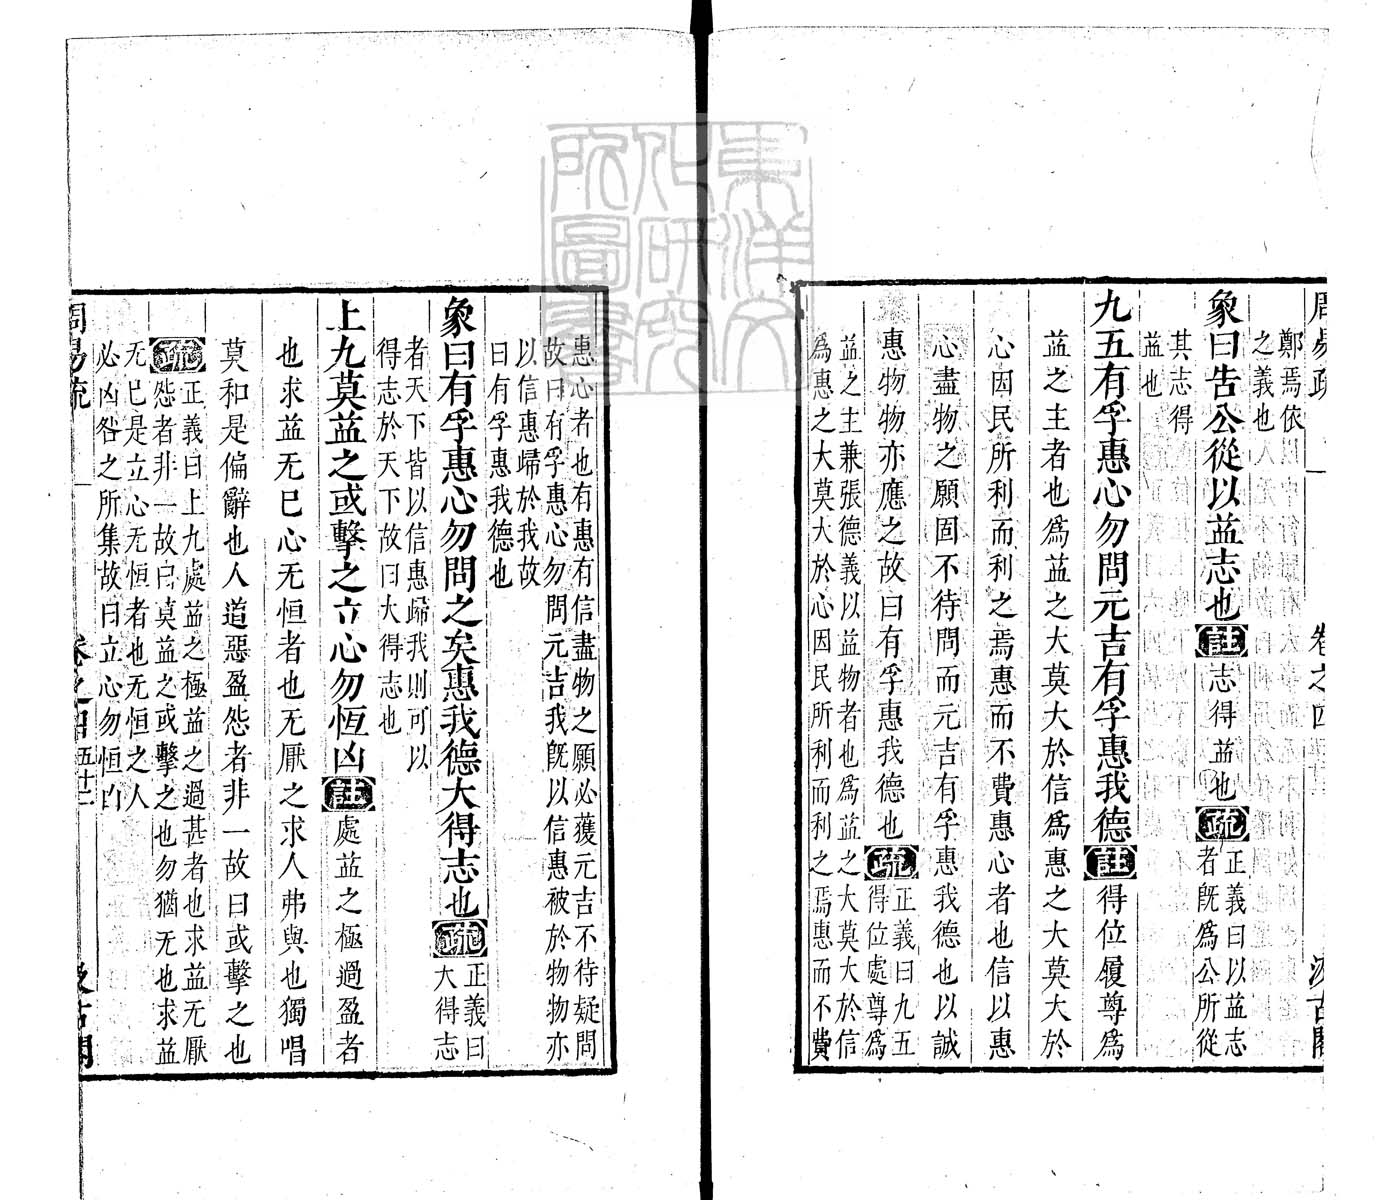 鄭焉依
之義也
象曰告公從以益志也註志得益也疏正義曰以益志
者旣爲公所從
其志得
益也
九五有孚惠心勿問元吉有孚惠我德註得位履尊爲
益之主者也爲益之大莫大於信爲惠之大莫大於
心因民所利而利之焉惠而不費惠心者也信以惠
心盡物之願固不待問而元吉有孚惠我德也以誠
惠物物亦應之故曰有孚惠我德也疏正義曰九五
得位處尊爲
益之主兼張德義以益物者也爲益之大莫大於信
爲惠之大莫大於心因民所利而利之焉惠而不費
惠心者也有惠有信盡物之願必獲元吉不待疑問
故曰有孚惠心勿問元吉我旣以信惠被於物物亦
以信惠歸於我故
曰有孚惠我德也
象曰有孚惠心勿問之矣惠我德大得志也疏正義曰
大得志
者天下皆以信惠歸我則可以
得志於天下故曰大得志也
上九莫益之或擊之立心勿恆凶註處益之極過盈者
也求益无已心无恒者也无厭之求人弗與也獨唱
莫和是偏辭也人道惡盈怨者非一故曰或擊之也
疏正義曰上九處益之極益之過甚者也求益无厭
怨者非一故曰莫益之或擊之也勿猶无也求益
无已是立心无恒者也无恒之人
必凶咎之所集故曰立心勿恒凶
周易疏
卷之四
五十二
汲古閣
東洋文化研究所圖書